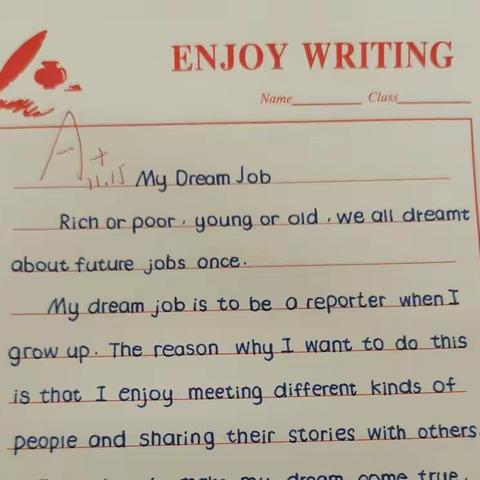 ENJOY WRITING
Name Class
A+
11.15
My Dream Job
Rich or poor, young or old, we all dreamt
about future jobs once.
My dream job is to be a reporter when I
grow up. The reason why I want to do this
is that I enjoy meeting different kinds of
people and sharing their stories with others.
make my dream come true,